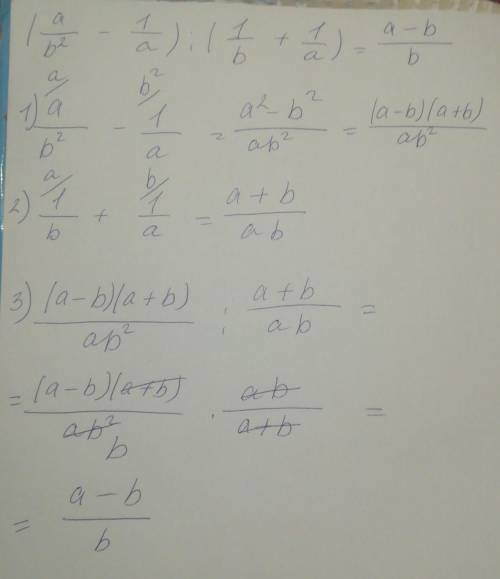 (a/b² - 1/a) : (1/b + 1/a) = (a-b)/b
1) a/ a/b² - b²/ 1/a = (a²-b²)/(ab²) = ((a-b)(a+b))/(ab²)
2) a/ 1/b + b/ 1/a = (a+b)/(ab)
3) ((a-b)(a+b))/(ab²) : (a+b)/(ab) =
= ((a-b)(a+b))/(ab²) b · (ab)/(a+b) =
= (a-b)/b